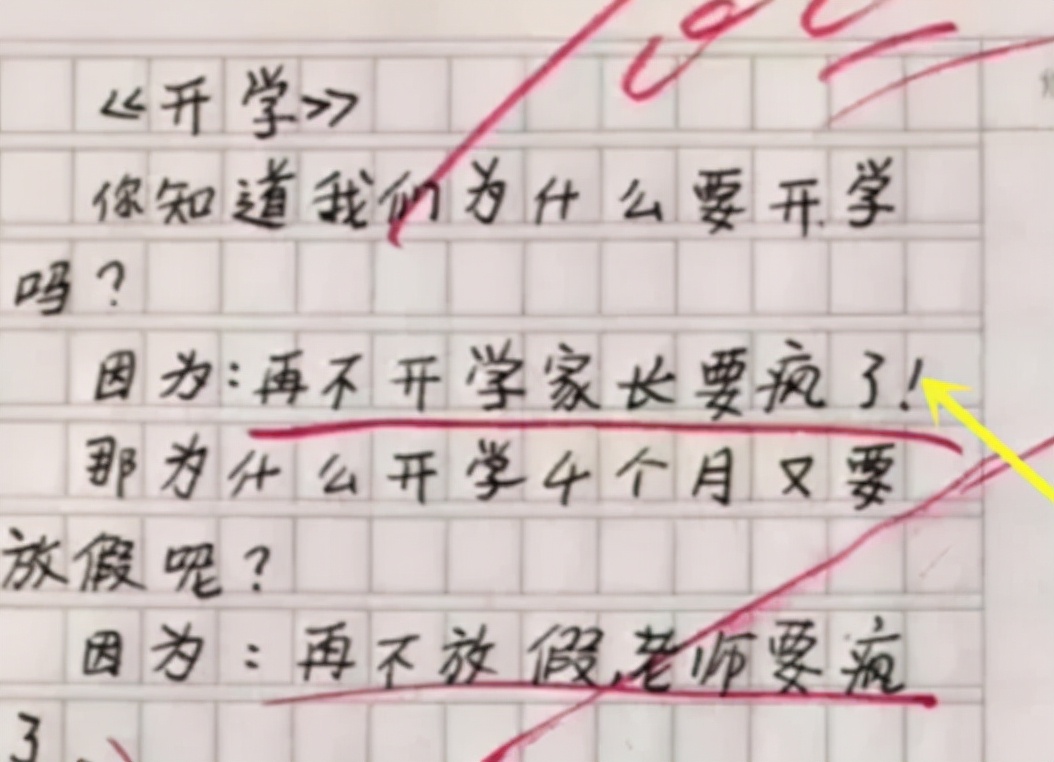 《开学》
你知道我们为什么要开学
吗？
因为：再不开学家长要疯了！
那为什么开学4个月又要
放假呢？
因为：再不放假，老师要疯
了